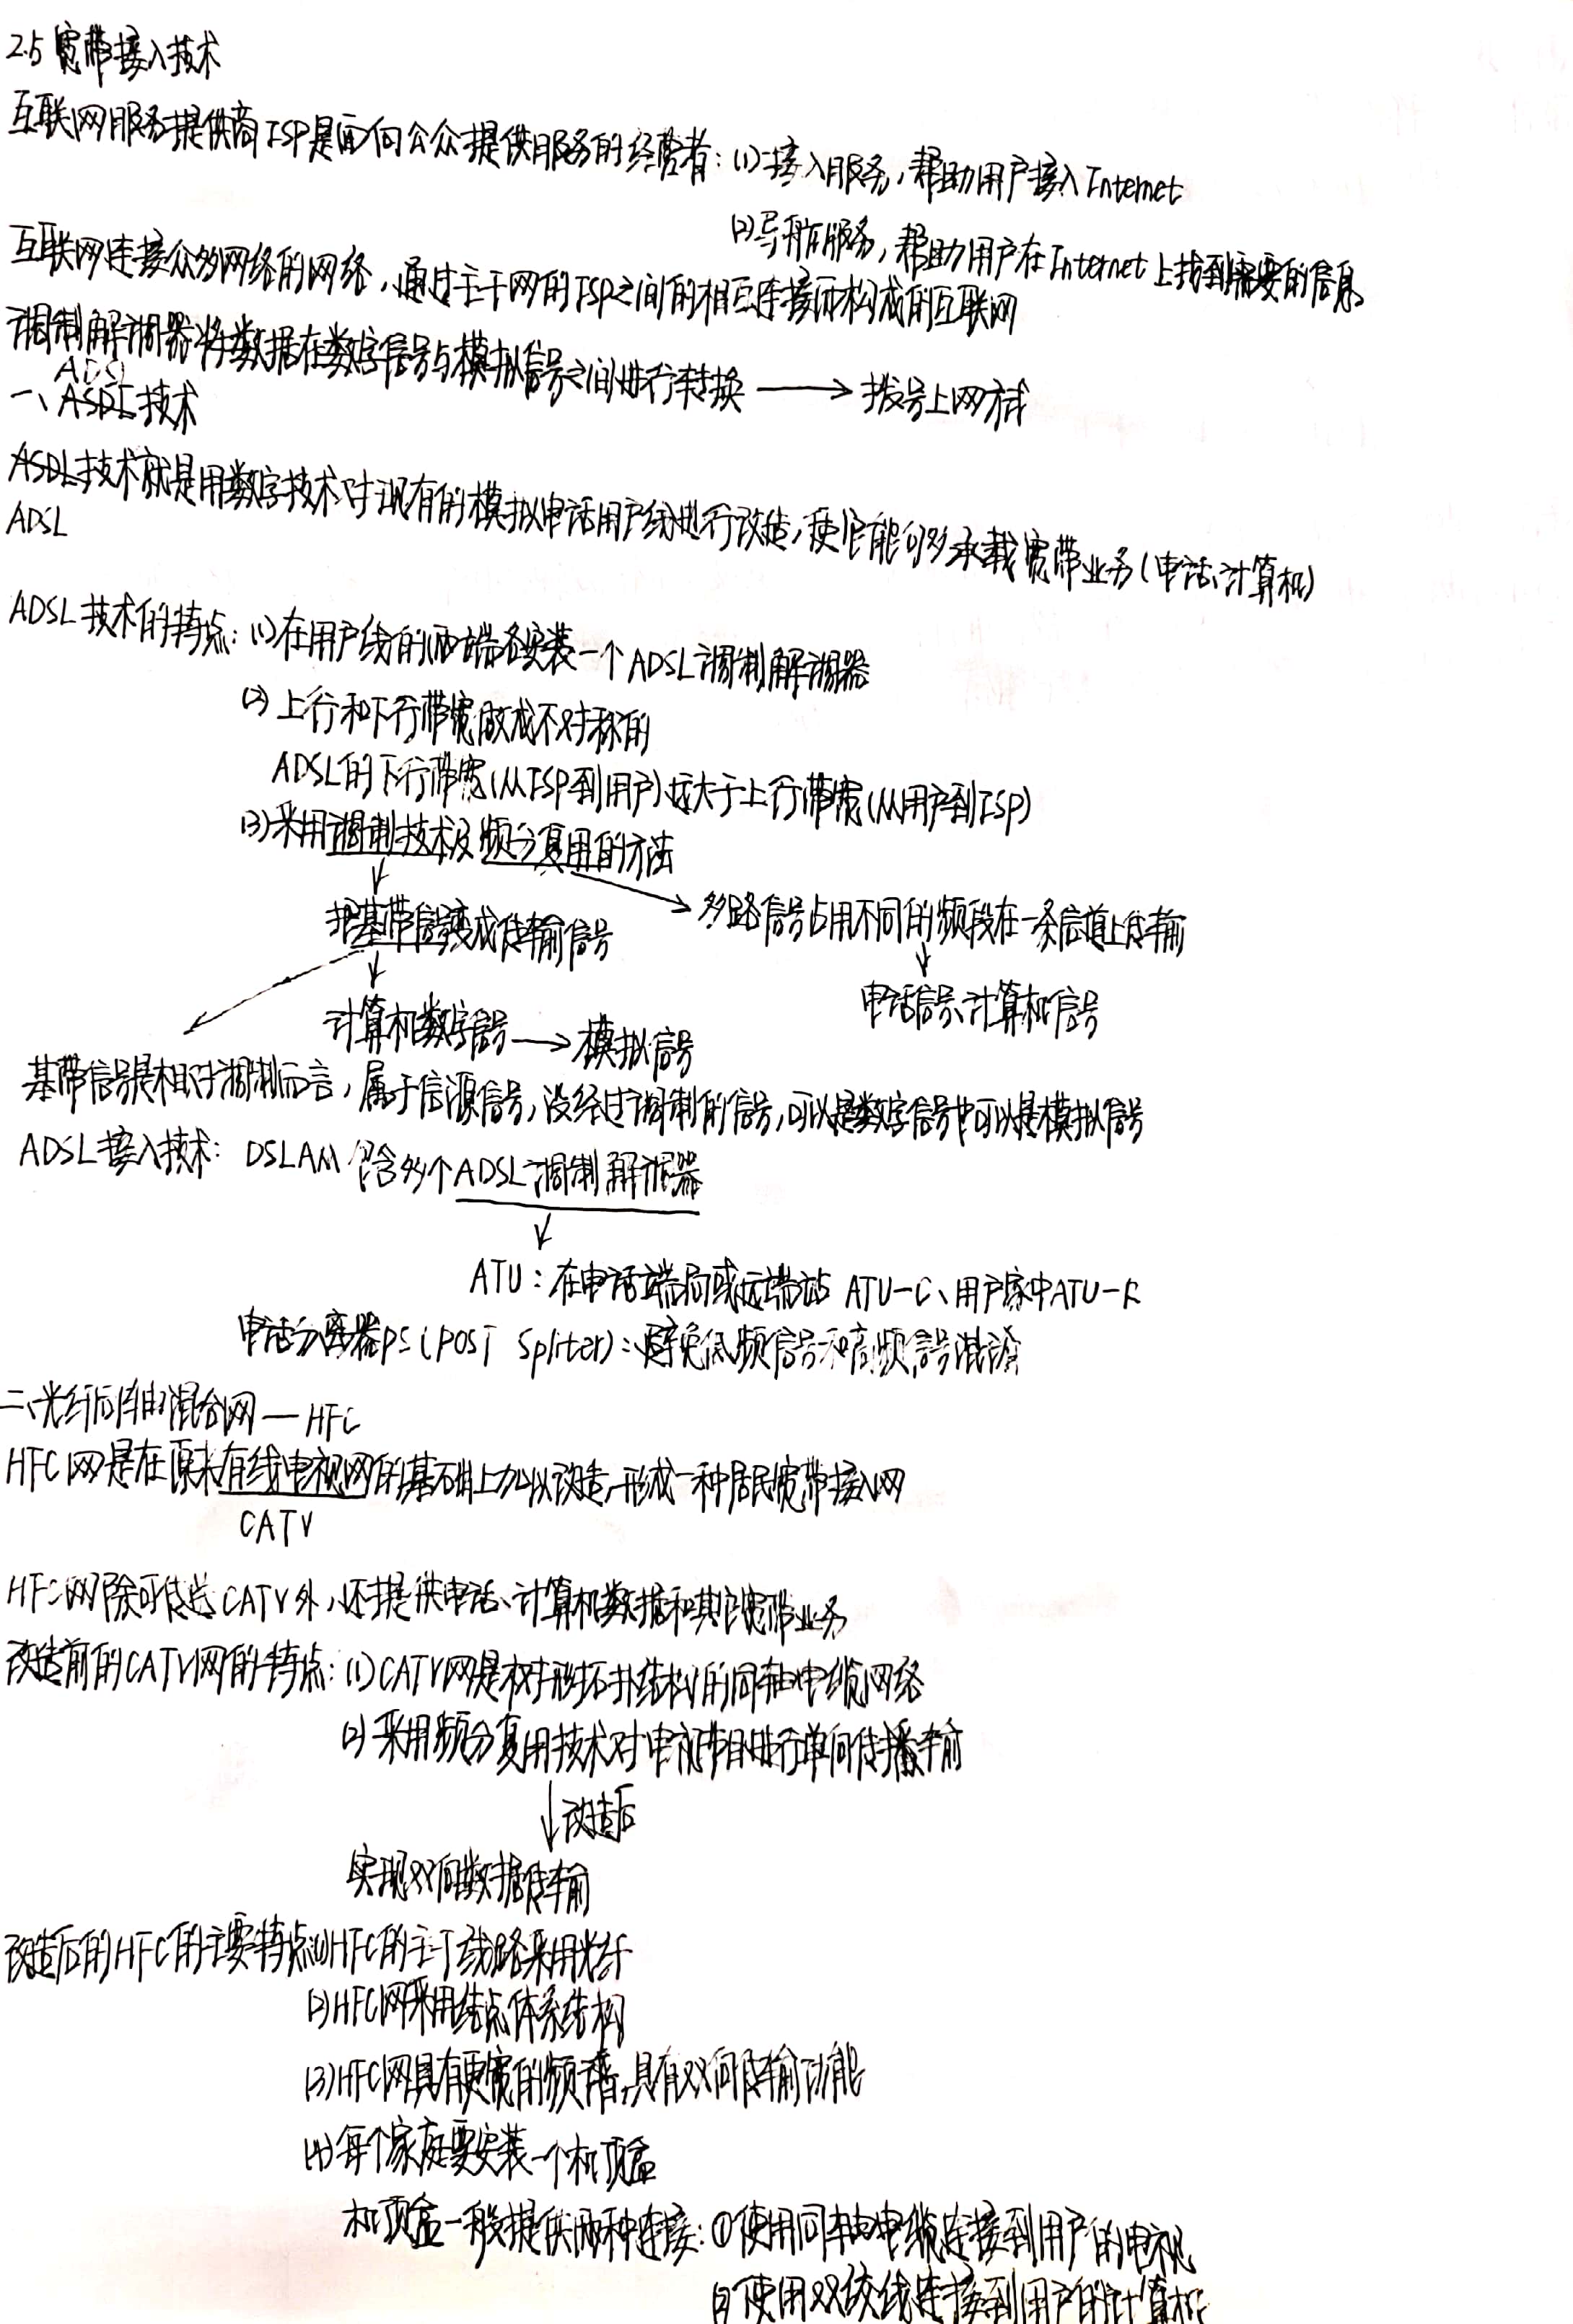 2.5 宽带接入技术
互联网服务提供商ISP是面向公众提供服务的经营者：(1)接入服务，帮助用户接入Internet
(2)导航服务，帮助用户在Internet上找到需要的信息
互联网连接众多网络的网络，通过主干网的ISP之间的相互连接而构成的互联网
调制解调器将数据在数字信号与模拟信号之间进行转换 → 拨号上网方式
ADSL
一、ASDL技术
ASDL技术就是用数字技术对现有的模拟电话用户线进行改造，使它能够承载宽带业务(电话、计算机)
ADSL
ADSL技术的特点：(1)在用户线的两端各安装一个ADSL调制解调器
(2)上行和下行带宽做成不对称的
ADSL的下行带宽(从ISP到用户)远大于上行带宽(从用户到ISP)
(3)采用调制技术及频分复用的方法
把基带信号变成传输信号
多路信号占用不同的频段在一条信道上传输
计算机数字信号→模拟信号
电话信号、计算机信号
基带信号是相对调制而言，属于信源信号，没经过调制的信号，可以是数字信号也可以是模拟信号
ADSL接入技术：DSLAM包含多个ADSL调制解调器
ATU：在电话端局或远端站 ATU-C、用户家中ATU-R
电话分离器PS(POST Spliter)：避免低频信号和高频信号混淆
二、光纤同轴混合网—HFC
HFC网是在原来有线电视网的基础上加以改造，形成一种居民宽带接入网
CATV
HFC网除可传送CATV外，还提供电话、计算机数据和其它宽带业务
改造前的CATV网的特点：(1)CATV网是树形拓扑结构的同轴电缆网络
(2)采用频分复用技术对电视节目进行单向传播传输
↓改造后
实现双向数据传输
改造后的HFC的主要特点(1)HFC的主干线路采用光纤
(2)HFC网采用结点体系结构
(3)HFC网具有更宽的频谱，具有双向传输功能
(4)每个家庭要安装一个机顶盒
机顶盒一般提供两种连接：①使用同轴电缆连接到用户的电视
②使用双绞线连接到用户的计算机